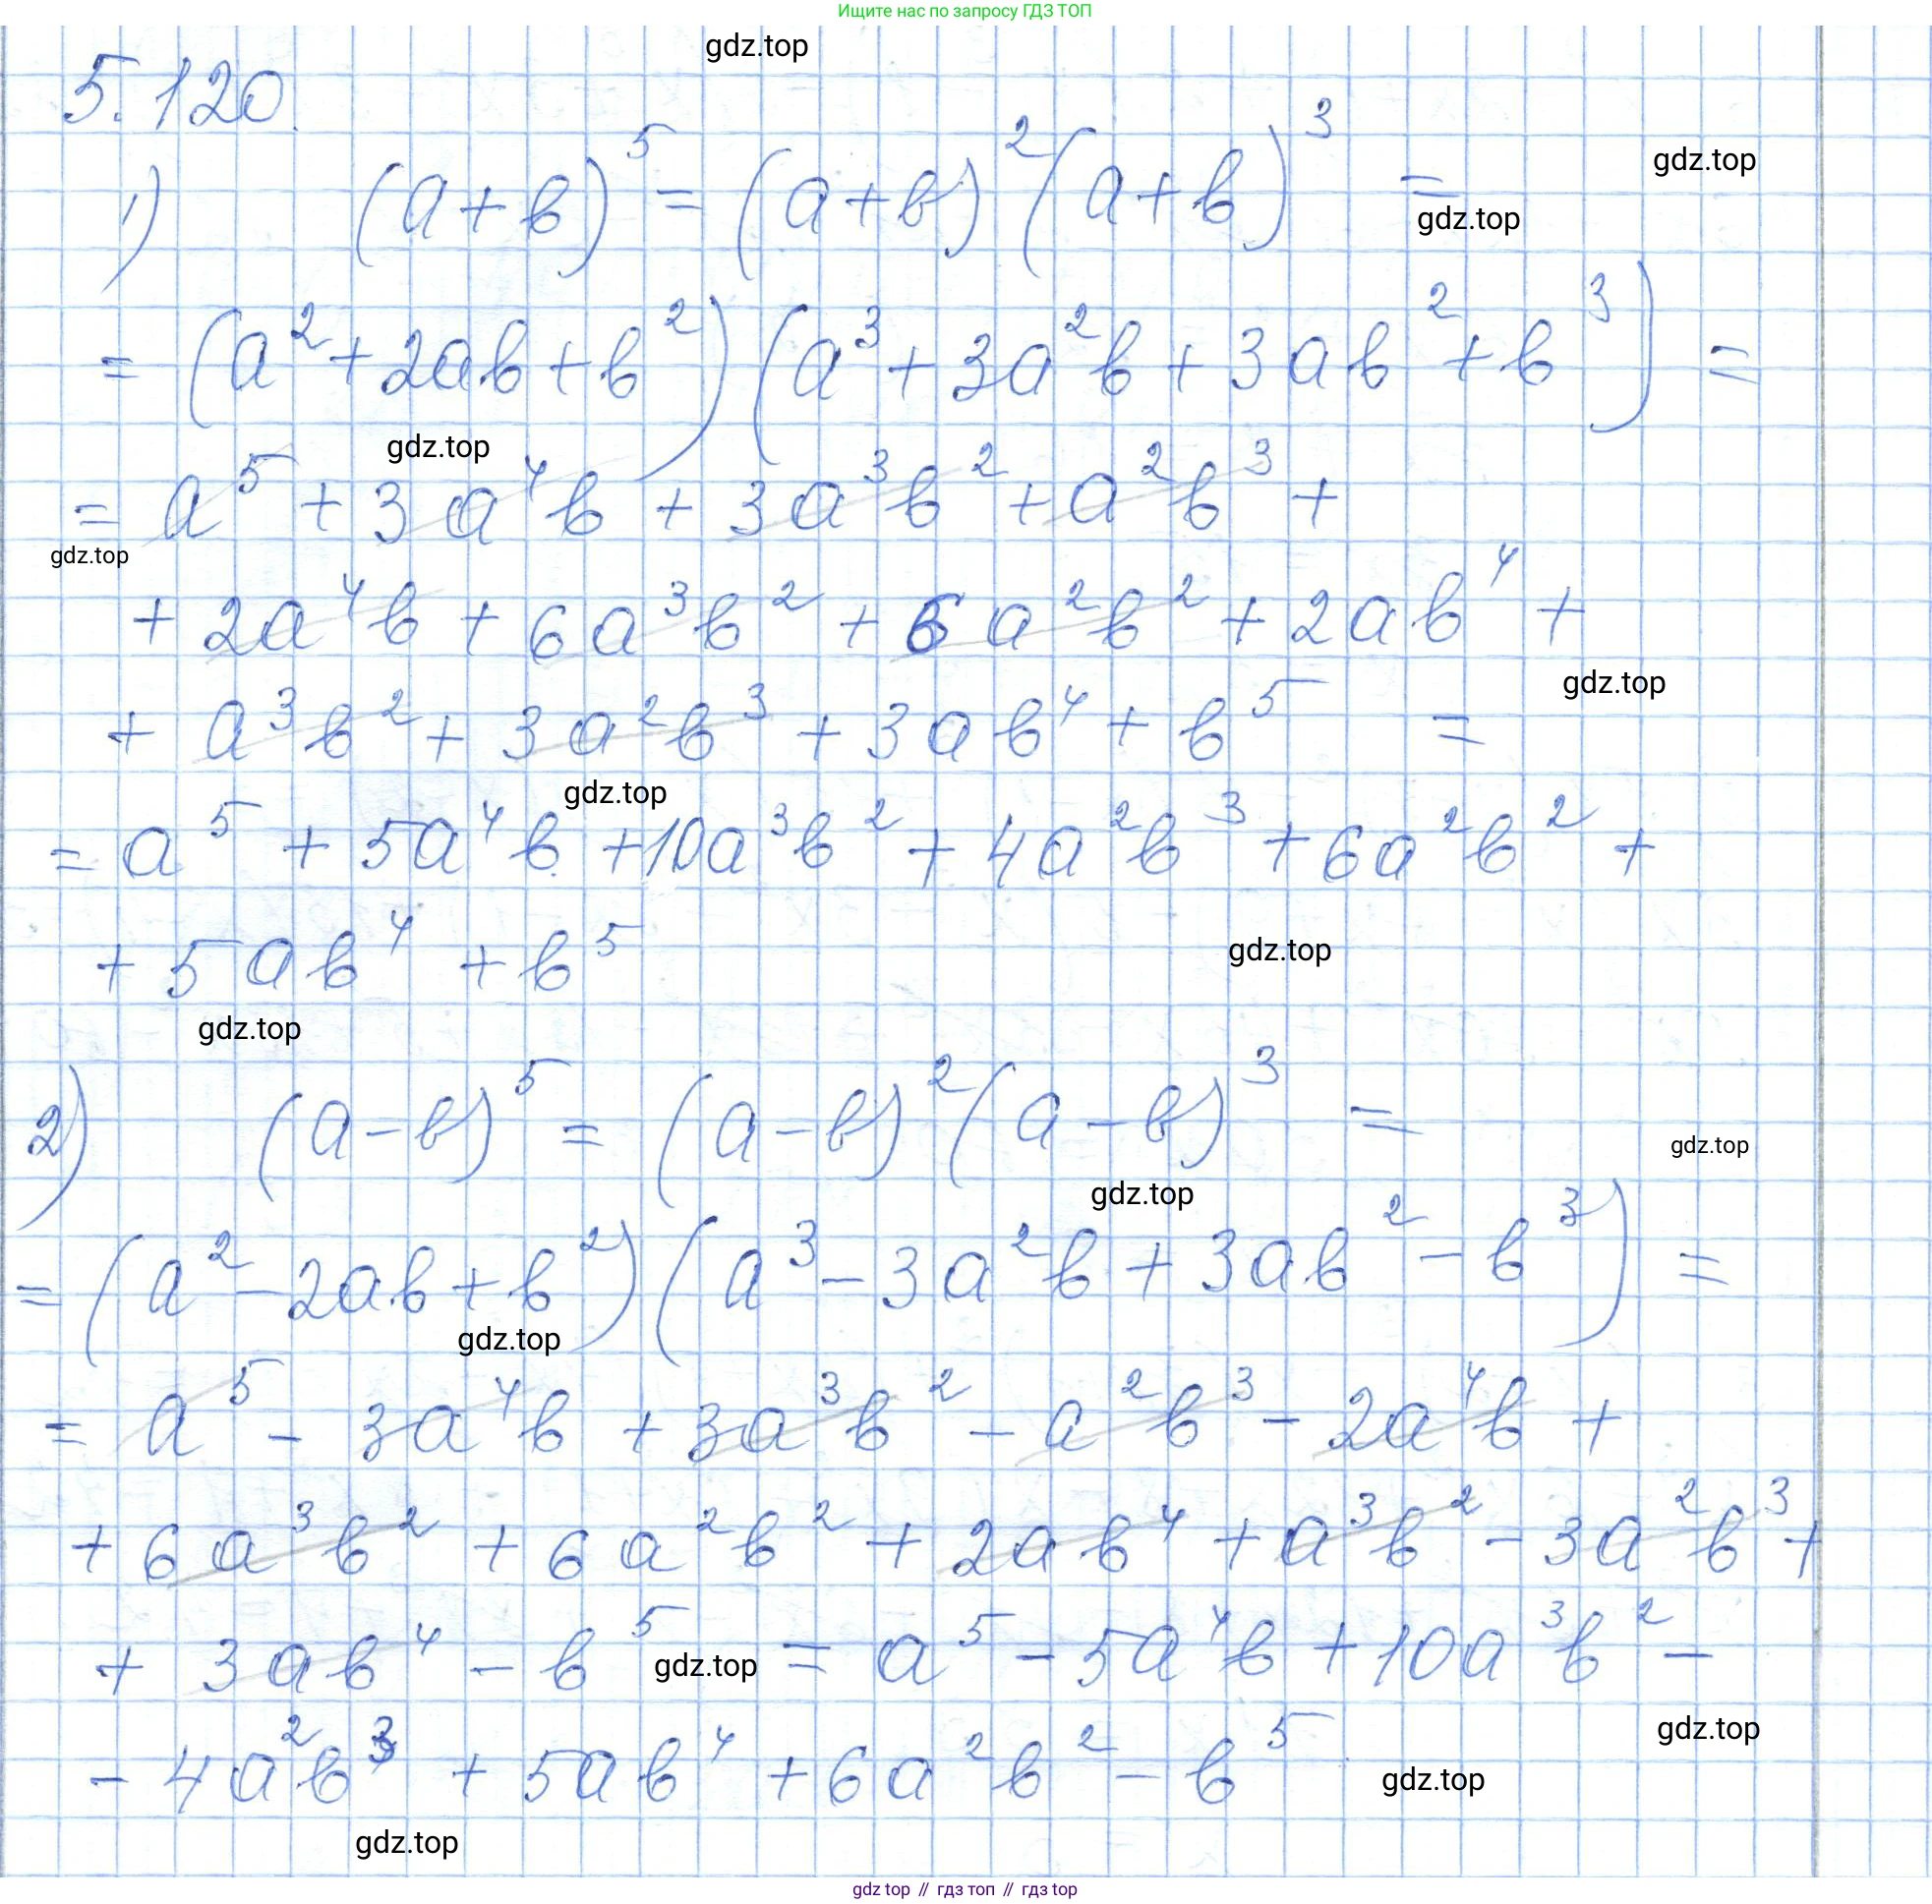 Ищите нас по запросу ГДЗ ТОП
gdz.top
5.120.
1) (a+в)⁵ = (a+в)²(a+в)³ =
gdz.top
gdz.top
= (a²+2aв+в²)(a³+3a²в+3aв²+в³) =
gdz.top
= a⁵ + 3a⁴в + 3a³в² + a²в³ +
gdz.top
+ 2a⁴в + 6a³в² + 6a²в² + 2aв⁴ +
gdz.top
+ a³в² + 3a²в³ + 3aв⁴ + в⁵ =
gdz.top
= a⁵ + 5a⁴в + 10a³в² + 4a²в³ + 6a²в² +
+ 5aв⁴ + в⁵
gdz.top
gdz.top
2) (a-в)⁵ = (a-в)²(a-в)³ =
gdz.top
gdz.top
= (a²-2aв+в²)(a³-3a²в+3aв²-в³) =
gdz.top
= a⁵ - 3a⁴в + 3a³в² - a²в³ - 2a⁴в +
+ 6a³в² + 6a²в² + 2aв⁴ + a³в² - 3a²в³ +
+ 3aв⁴ - в⁵ = a⁵ - 5a⁴в + 10a³в² -
gdz.top
gdz.top
- 4a²в³ + 5aв⁴ + 6a²в² - в⁵
gdz.top
gdz.top
gdz top // гдз топ // гдз top